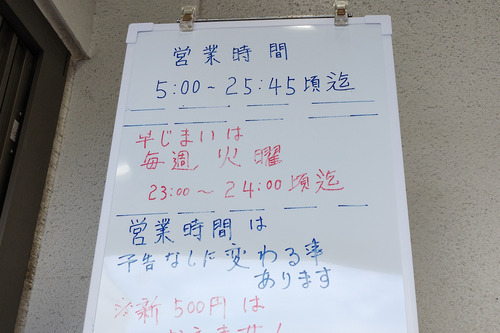 営業時間
5:00～25:45頃迄
早じまいは
毎週 火曜
23:00～24:00頃迄
営業時間は
予告なしに変わる率
あります
新500円は